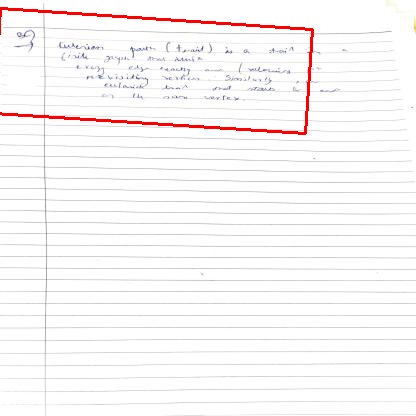 Eulerian path (trail) is a trail in a
finite graph that visits
every edge exactly one (allowing
revisiting vertices. Similarly
eulerian trail that starts & ends
on the same vertex.